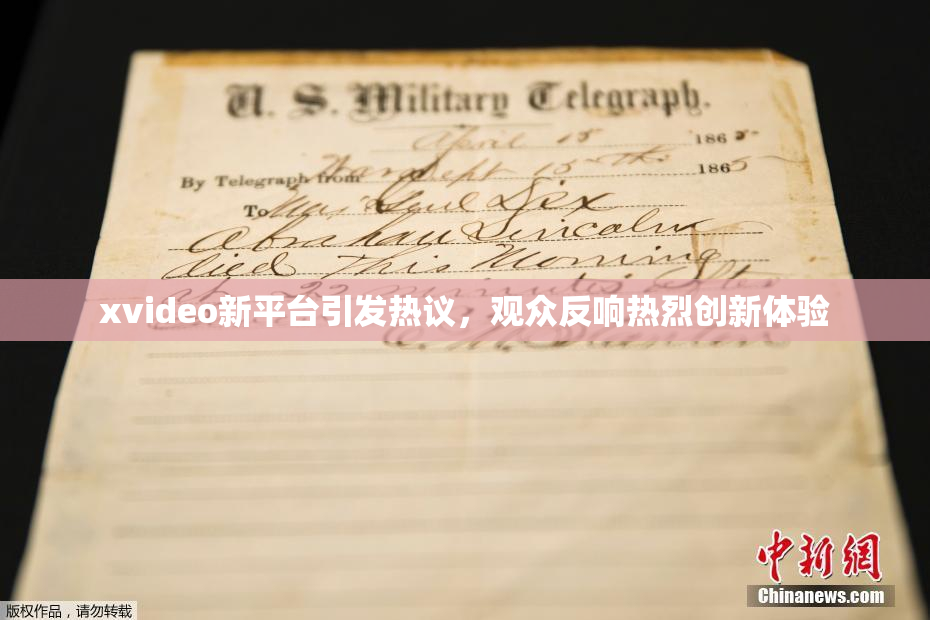 U. S. Military Telegraph.
April 15 1865
By Telegraph from War Dept 15th 1865
To Maj Genl Dix
Abraham Lincoln
died this Morning
at 22 minutes after
xvideo新平台引发热议，观众反响热烈创新体验
E. M. Stanton
中新网
Chinanews.com
版权作品，请勿转载